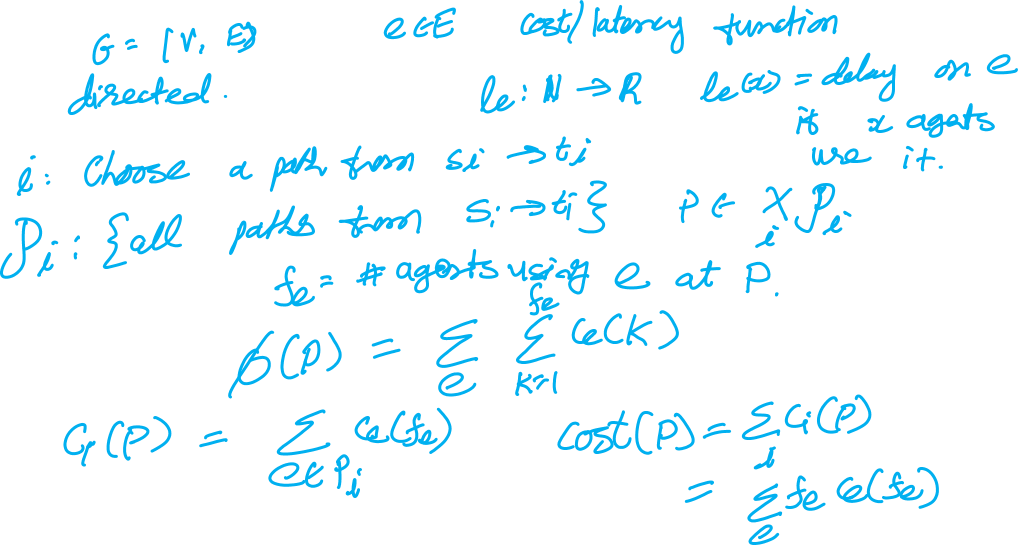 G = (V, E) e ∈ E cost/latency function
directed. le : N → R le(x) = delay on e
if x agents
i : Choose a path from si → ti use it.
Pi : {all paths from si → ti} P ∈ X Pi
i
fe = # agents using e at P.
ϕ(P) = Σe Σ_{k=1}^{fe} ce(k)
Ci(P) = Σ_{e∈Pi} ce(fe) cost(P) = Σi Ci(P)
= Σe fe ce(fe)